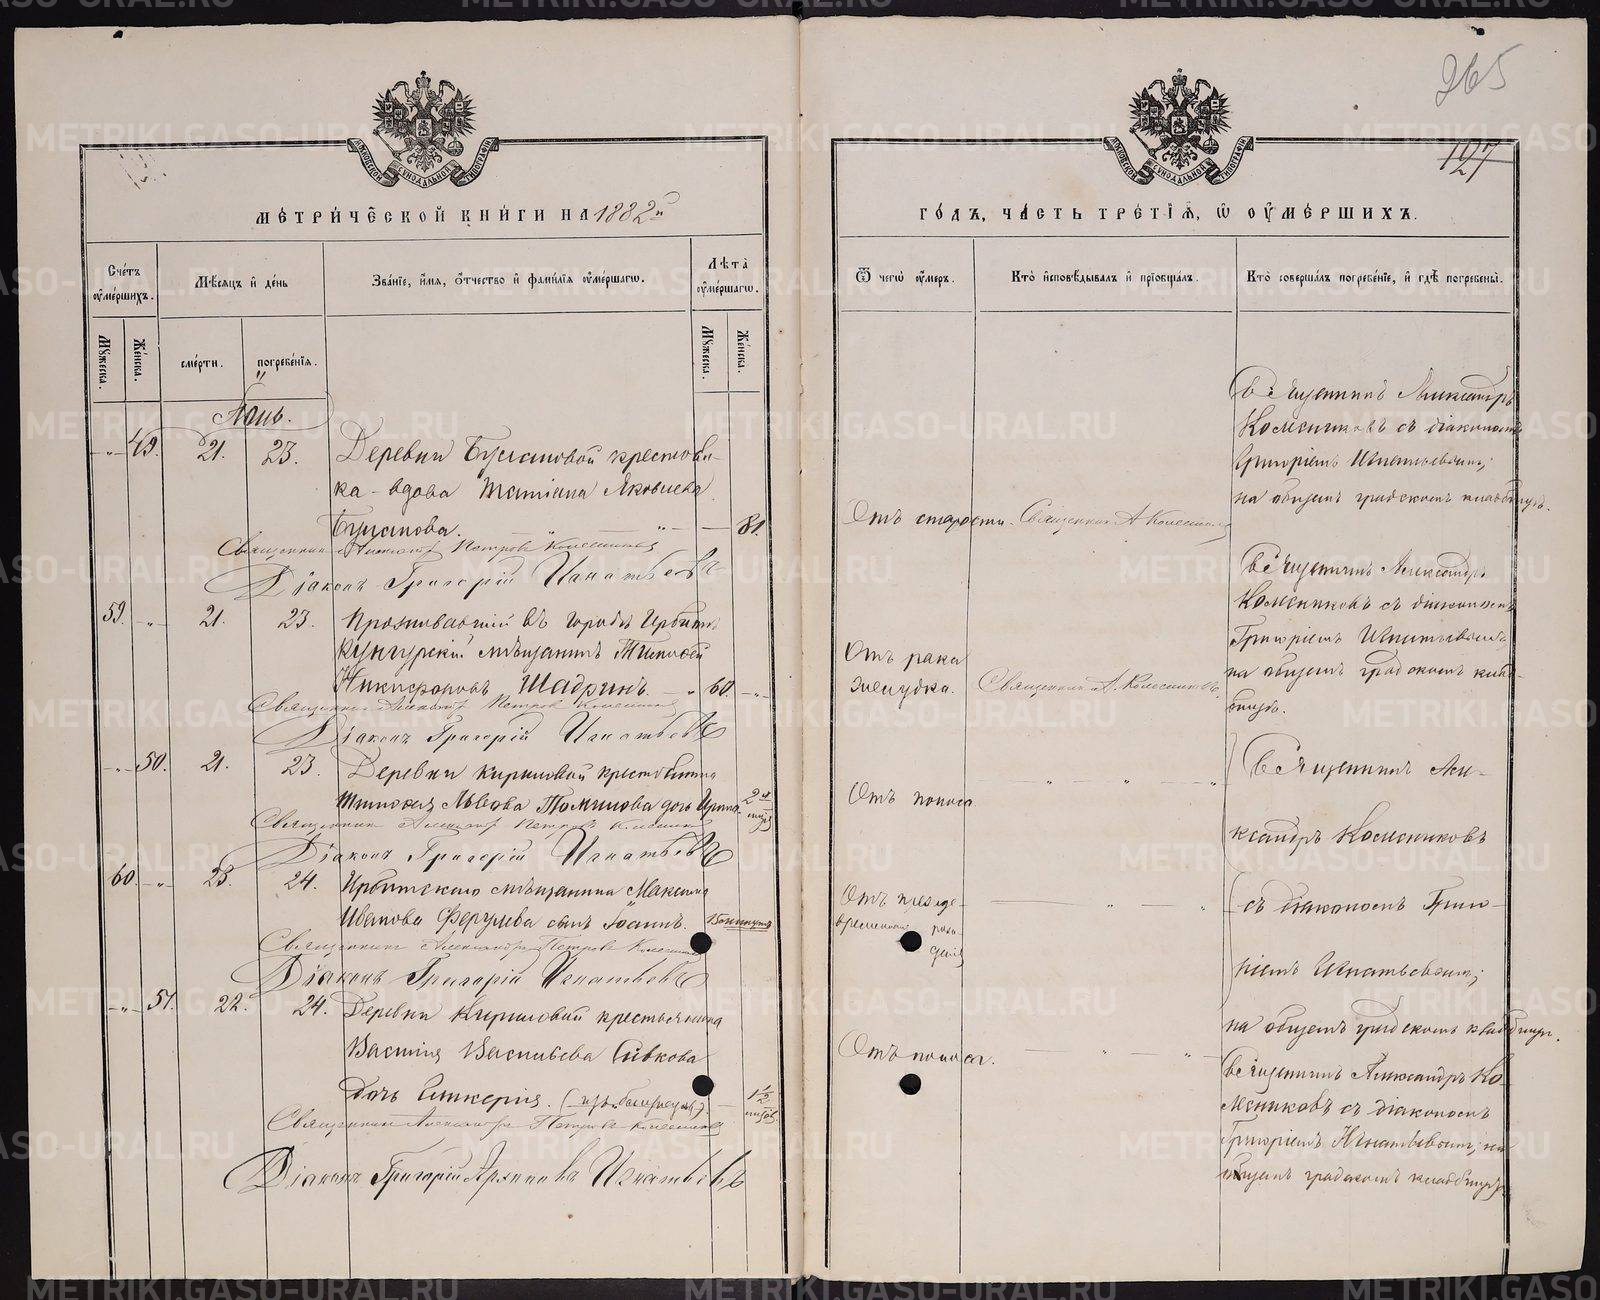 265
127
МЕТРИЧЕСКОЙ КНИГИ НА 1882й
ГОДЪ, ЧАСТЬ ТРЕТІЯ, Ѡ ОУМЕРШИХЪ.
Счетъ оумершихъ.
Мѣсяцъ и день
Званіе, имя, отчество и фамилія оумершагѡ.
Лѣта оумершагѡ.
Ѿ чегѡ оумеръ.
Кто исповѣдывалъ и пріобщалъ.
Кто совершалъ погребеніе, и гдѣ погребены.
Мужеска.
Женска.
смерти.
погребенія.
Мужеска.
Женска.
Іюнь.
49. 21. 23. Деревни Бугановой крестьян-
ка-вдова Татіана Яковлева
Буланова. 81.
Отъ старости. Священникъ А. Колесниковъ
Священникъ Александръ
Колесниковъ съ діакономъ
Григоріемъ Игнатьевымъ;
на общемъ градскомъ кладбищѣ.
Священникъ Александръ Петровъ Колесниковъ
Діаконъ Григорій Игнатьевъ
59. 21. 23. Проживавшій въ городѣ Ирбити
Кунгурскій мѣщанинъ Тимофей
Никифоровъ Шадринъ. 60.
Отъ рака
желудка. Священникъ А. Колесниковъ
Священникъ Александръ
Колесниковъ съ діакономъ
Григоріемъ Игнатьевымъ;
на общемъ градскомъ клад-
бищѣ.
Священникъ Александръ Петровъ Колесниковъ
Діаконъ Григорій Игнатьевъ
50. 21. 23. Деревни Кириловой крестьянина
Тимофея Львова Томилова дочь Ирина
Отъ поноса
Священникъ Але-
ксандръ Колесниковъ
Священникъ Александръ Петровъ Колесниковъ
Діаконъ Григорій Игнатьевъ
60. 23. 24. Ирбитскаго мѣщанина Максима
Иванова сынъ Іоаннъ. 15 минутъ
Отъ прежде-
временныхъ
съ діакономъ Григо-
ріемъ Игнатьевымъ;
Священникъ Александръ Петровъ Колесниковъ
Діаконъ Григорій Игнатьевъ
51. 22. 24. Деревни Кириловой крестьянина
Василія Васильева Сивкова
дочь Гликерія.
Отъ поноса.
на общемъ градскомъ кладбищѣ.
Священникъ Александръ Ко-
лесниковъ съ діакономъ
Григоріемъ Игнатьевымъ; на
общемъ градскомъ кладбищѣ
Священникъ Александръ Петровъ Колесниковъ
Діаконъ Григорій Архиповъ Игнатьевъ
METRIKI.GASO-URAL.RU